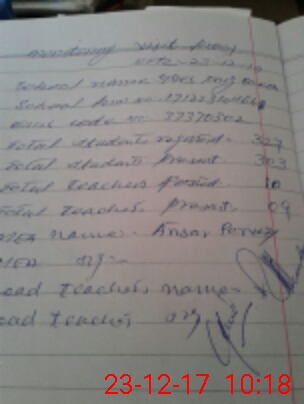 monitoring visit proof
Date - 23-12-17
School name
School
code no 37370302
Total students rejisted - 327
Total students present. 303
Total teachers Posted. 10
Total teachers present. 09
name - Ansar Pervez
sig:-
ead teacher name
ead teacher sig
23-12-17 10:18